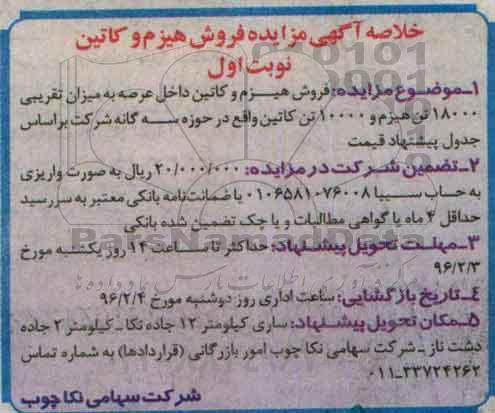 خلاصه آگهی مزایده فروش هیزم و کاتین
نوبت اول
۱ـ موضوع مزایده: فروش هیـزم و کاتین داخل عرصه به میزان تقریبی
۱۸۰۰۰ تن هیزم و ۱۰۰۰۰ تن کاتین واقع در حوزه سـه گانه شرکت براساس
جدول پیشنهاد قیمت
۲ـ تضمین شـرکت در مزایده: ۲۰/۰۰۰/۰۰۰ ریال به صورت واریزی
به حساب سیبا ۰۱۰۶۵۸۱۰۷۶۰۰۸ یا ضمانت‌نامه بانکی معتبر به سررسید
حداقل ۴ ماه یا گواهی مطالبات و یا چک تضمین شده بانکی
۳ـ مهلـت تحویل پیشـنهاد: حداکثر تا ساعت ۱۴ روز یکشنبه مورخ
۹۶/۲/۳
۴ـ تاریخ بازگشایی: ساعت اداری روز دوشنبه مورخ ۹۶/۲/۴
۵ـ مکان تحویل پیشـنهاد: ساری کیلومتر ۱۲ جاده نکا ـ کیلومتر ۲ جاده
دشت ناز ـ شرکت سهامی نکا چوب امور بازرگانی (قراردادها) به شماره تماس
۰۱۱-۳۳۷۲۴۲۶۲
شرکت سهامی نکا چوب
ParsNamadData